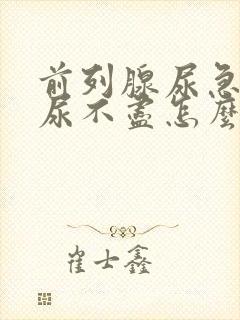 前列腺尿急
尿不盡怎麼
崔士鑫